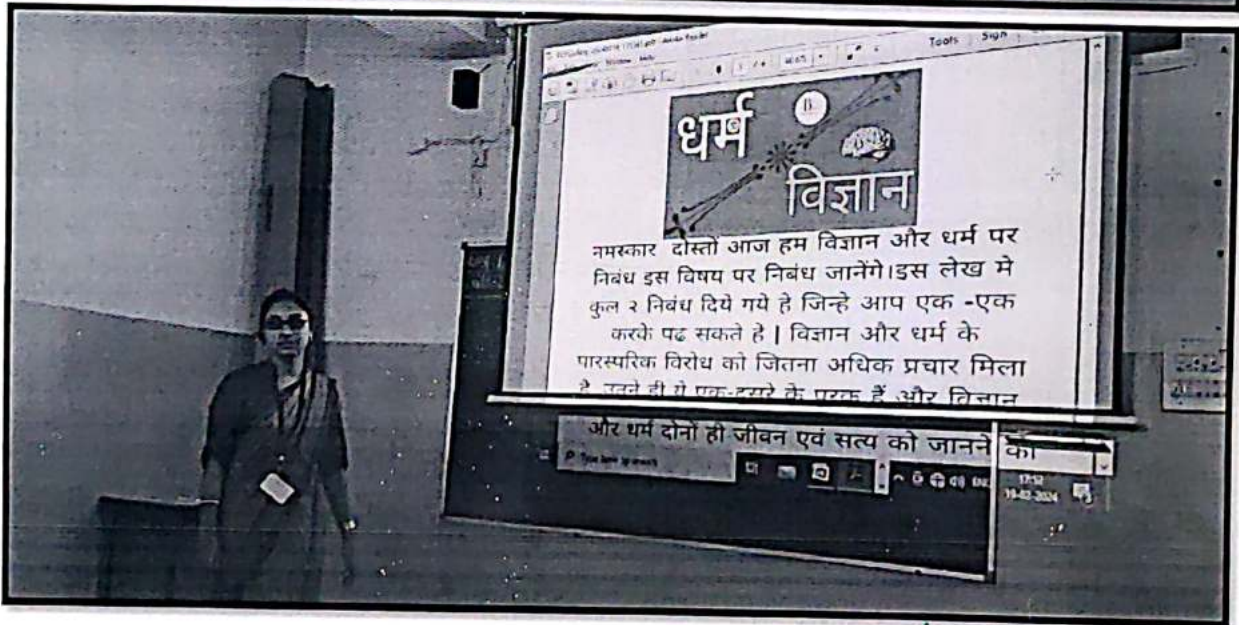 Tools Sign
धर्म
विज्ञान
नमस्कार दोस्तों आज हम विज्ञान और धर्म पर
निबंध इस विषय पर निबंध जानेंगे।इस लेख मे
कुल २ निबंध दिये गये हे जिन्हे आप एक -एक
करके पढ सकते हे | विज्ञान और धर्म के
पारस्परिक विरोध को जितना अधिक प्रचार मिला
है उतने ही ये एक-दूसरे के पूरक हैं और विज्ञान
और धर्म दोनों ही जीवन एवं सत्य को जानने की
Type here to search
ENG
17:32
19-02-2024